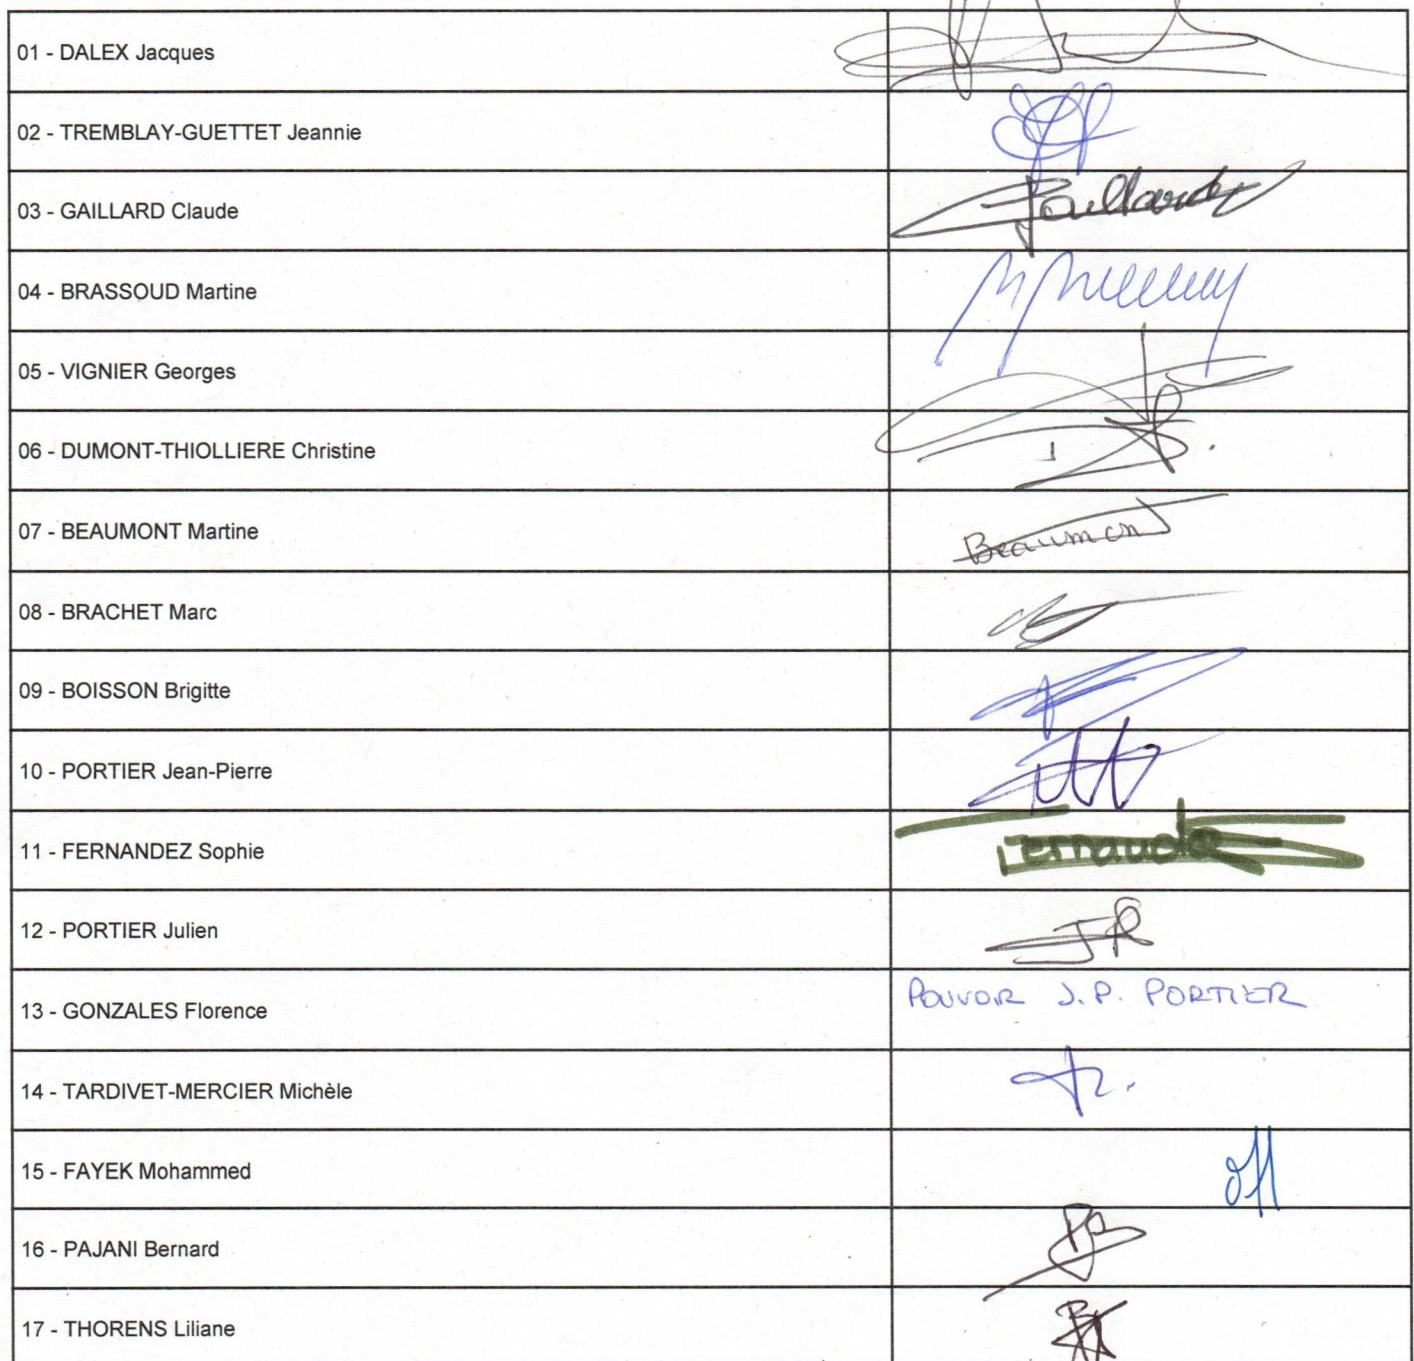 01 - DALEX Jacques
02 - TREMBLAY-GUETTET Jeannie
03 - GAILLARD Claude
Gaillard
04 - BRASSOUD Martine
05 - VIGNIER Georges
06 - DUMONT-THIOLLIERE Christine
07 - BEAUMONT Martine
Beaumont
08 - BRACHET Marc
09 - BOISSON Brigitte
10 - PORTIER Jean-Pierre
11 - FERNANDEZ Sophie
Fernandez
12 - PORTIER Julien
13 - GONZALES Florence
POUVOIR J.P. PORTIER
14 - TARDIVET-MERCIER Michèle
15 - FAYEK Mohammed
16 - PAJANI Bernard
17 - THORENS Liliane